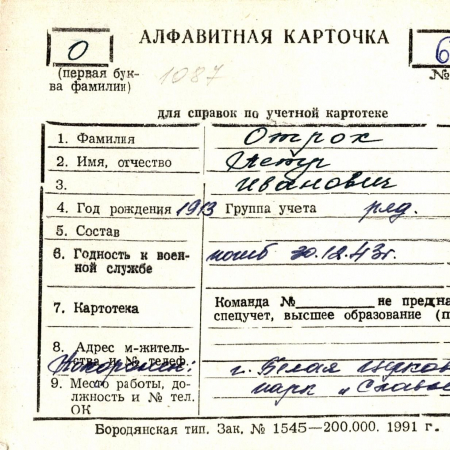 О
АЛФАВИТНАЯ КАРТОЧКА
6
(первая бук-
ва фамилии)
1087
№
для справок по учетной картотеке
1. Фамилия Отрох
2. Имя, отчество Петур
3. Иванович
4. Год рождения 1913 Группа учета ряд.
5. Состав
6. Годность к воен-
ной службе погиб 30.12.43г.
7. Картотека Команда № не предна
спецучет, высшее образование (п
8. Адрес м-житель-
ства и № телеф.
Похоронен: г. Белая Церков
9. Место работы, до-
лжность и № тел. парк „Славы
ОК
Бородянская тип. Зак. № 1545—200.000. 1991 г.